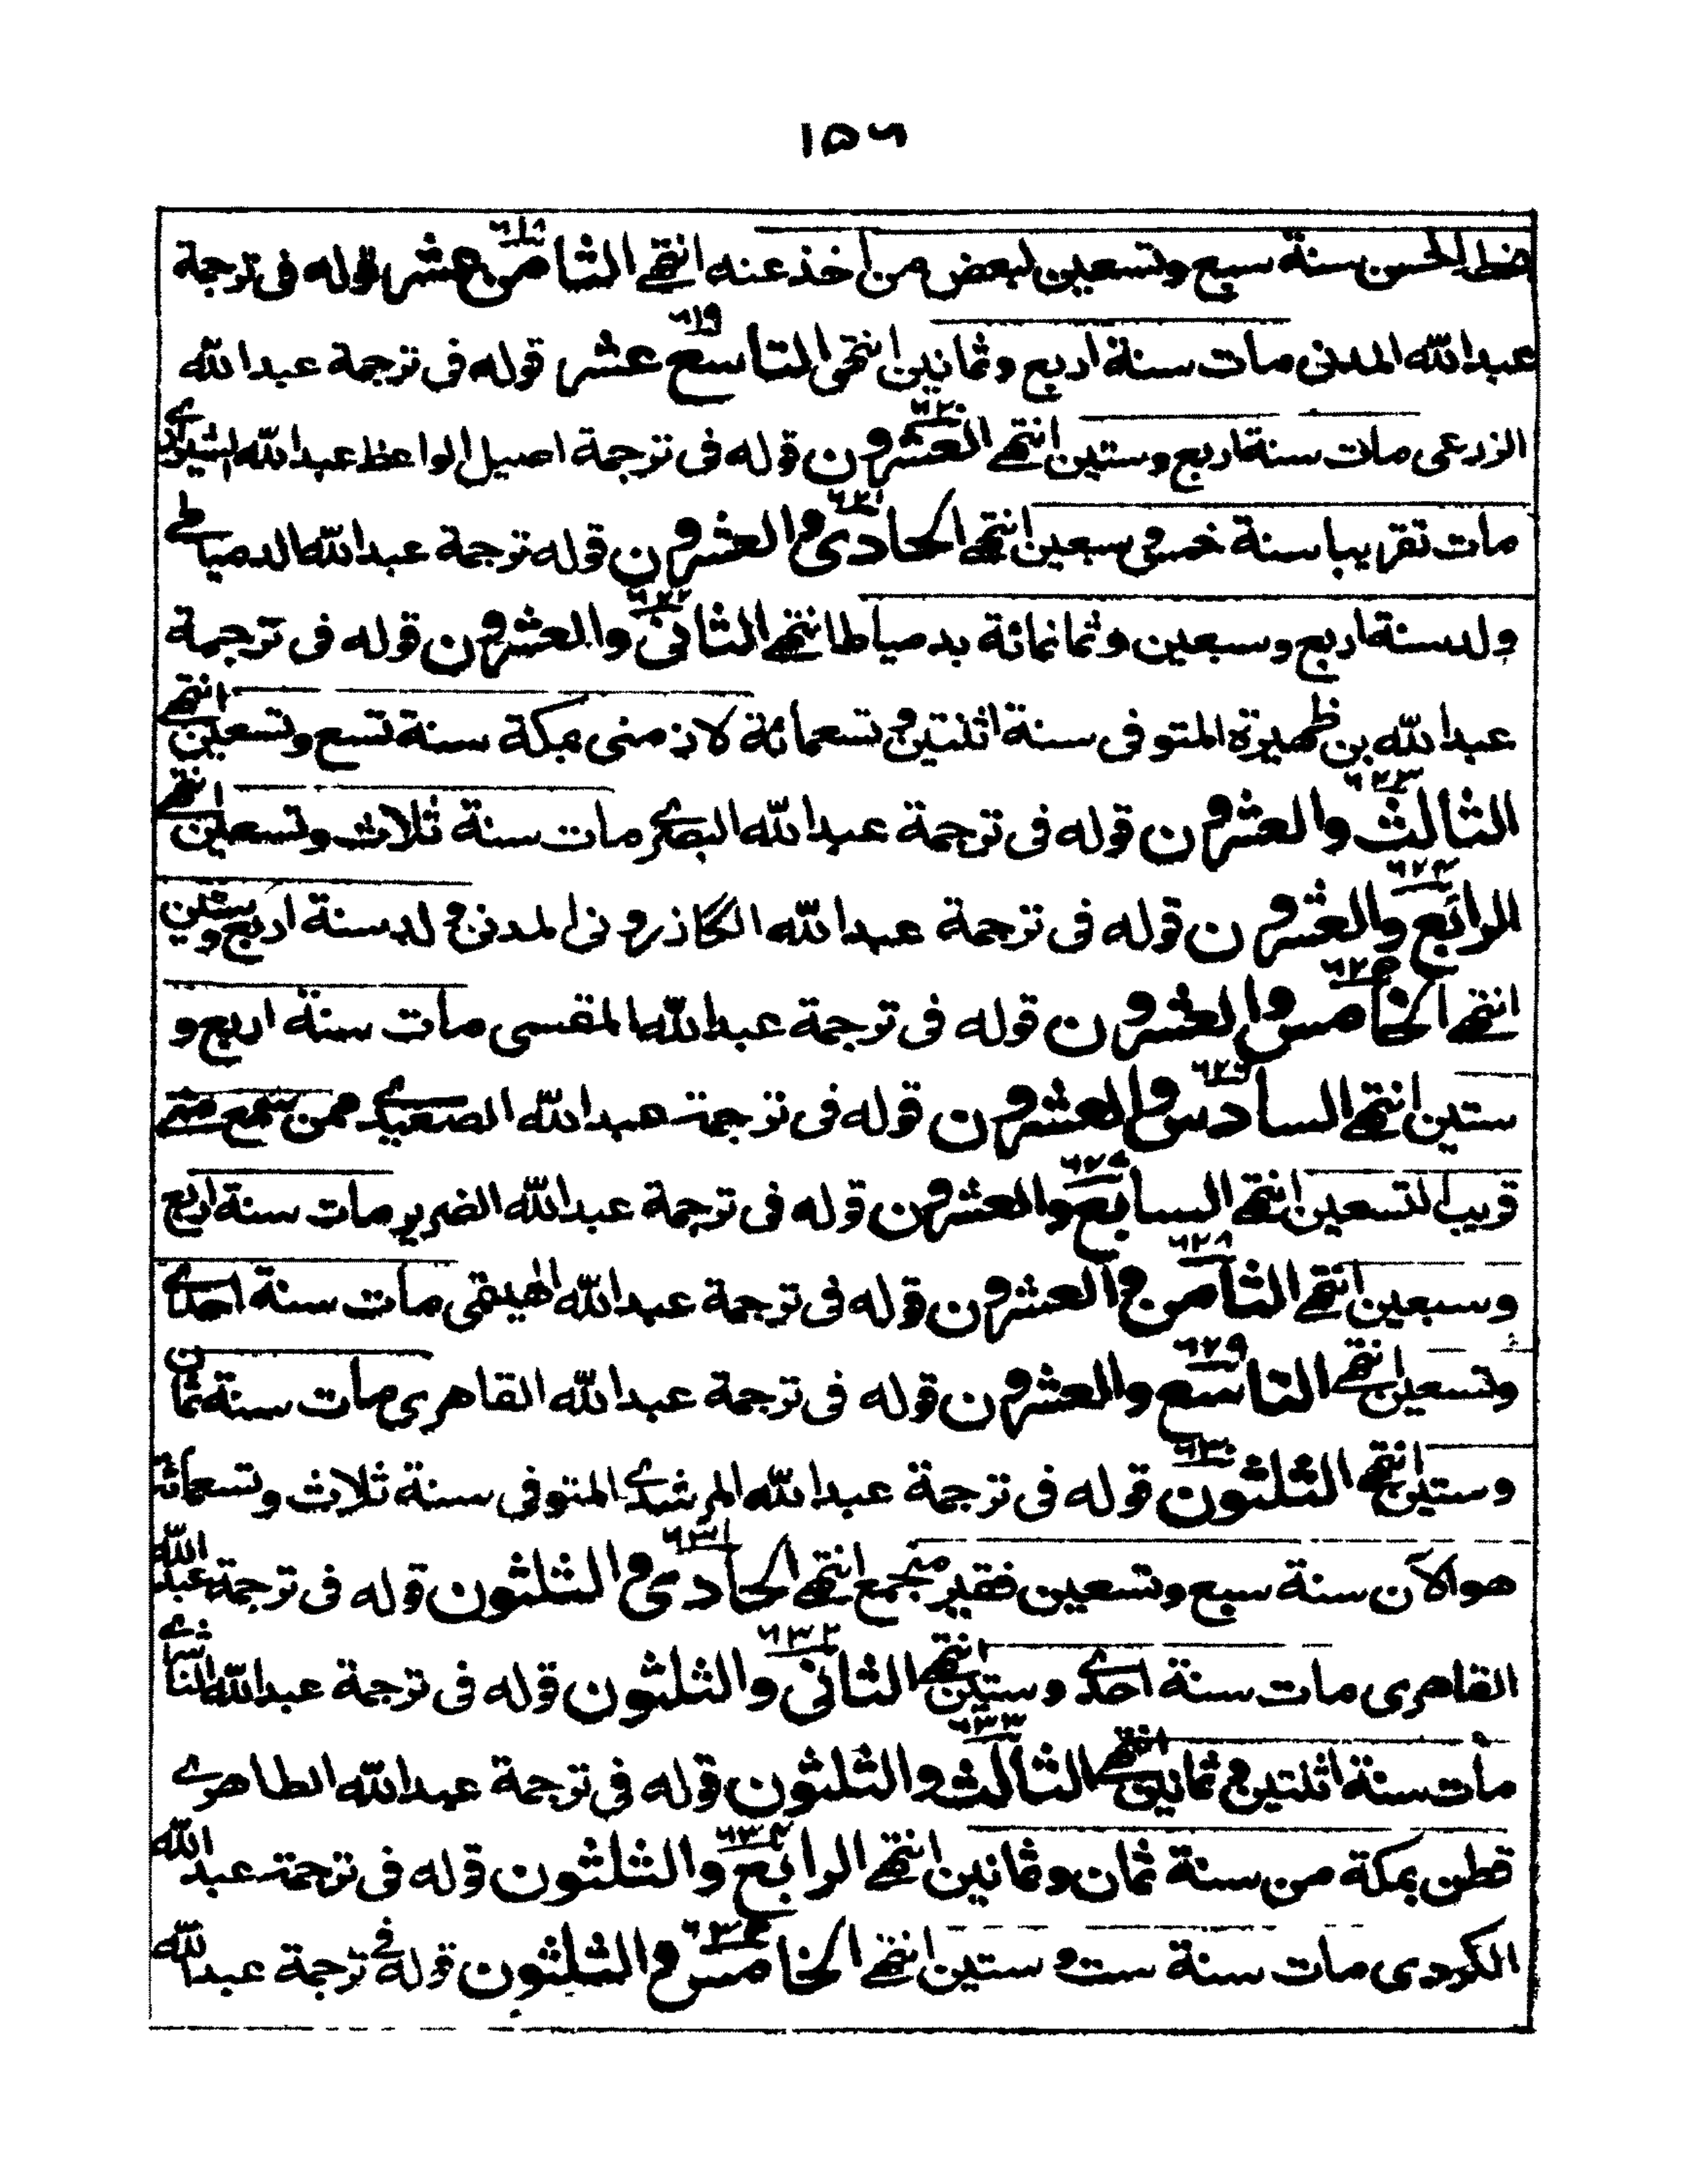 ١٥٦
خطه الحسن سنة سبع وتسعين لبعض من اخذ عنه انتهى الثامن عشر ٦١٨ قوله فى ترجمة
عبد الله المدنى مات سنة اربع وثمانين انتهى التاسع عشر ٦١٩ قوله فى ترجمة عبد الله
الزرعى مات سنة اربع وستين انتهى العشرون ٦٢٠ قوله فى ترجمة اصيل الواعظ عبد الله الشيرازى
مات تقريبا سنة خمس وسبعين انتهى الحادى والعشرون ٦٢١ قوله ترجمة عبد الله الدمياطى
ولد سنة اربع وسبعين وثمانمائة بدمياط انتهى الثانى والعشرون ٦٢٢ قوله فى ترجمة
عبد الله بن ظهيرة المتوفى سنة اثنتين وتسعمائة لاذ منى بمكة سنة تسع وتسعين انتهى
الثالث والعشرون ٦٢٣ قوله فى ترجمة عبد الله البصرى مات سنة ثلاث وتسعين انتهى
الرابع والعشرون ٦٢٤ قوله فى ترجمة عبد الله الكاذرونى المدنى ولد سنة اربع وستين
انتهى الخامس والعشرون ٦٢٥ قوله فى ترجمة عبد الله المقسى مات سنة اربع و
ستين انتهى السادس والعشرون ٦٢٦ قوله فى ترجمة عبد الله الصعيدى ممن سمع منى
قريب التسعين انتهى السابع والعشرون ٦٢٧ قوله فى ترجمة عبد الله الضرير مات سنة اربع
وسبعين انتهى الثامن والعشرون ٦٢٨ قوله فى ترجمة عبد الله الهيتمى مات سنة احدى
وتسعين انتهى التاسع والعشرون ٦٢٩ قوله فى ترجمة عبد الله القاهرى مات سنة ثمان
وستين انتهى الثلثون ٦٣٠ قوله فى ترجمة عبد الله المرشدى المتوفى سنة ثلاث وتسعمائة
هو الآن سنة سبع وتسعين فقير منجمع انتهى الحادى والثلثون ٦٣١ قوله فى ترجمة عبد الله
القاهرى مات سنة احدى وستين انتهى الثانى والثلثون ٦٣٢ قوله فى ترجمة عبد الله الناشرى
مات سنة اثنتين وثمانين انتهى الثالث والثلثون ٦٣٣ قوله فى ترجمة عبد الله الطاهرى
قطن بمكة من سنة ثمان وثمانين انتهى الرابع والثلثون ٦٣٤ قوله فى ترجمة عبد الله
الكردى مات سنة ست وستين انتهى الخامس والثلثون ٦٣٥ قوله فى ترجمة عبد الله